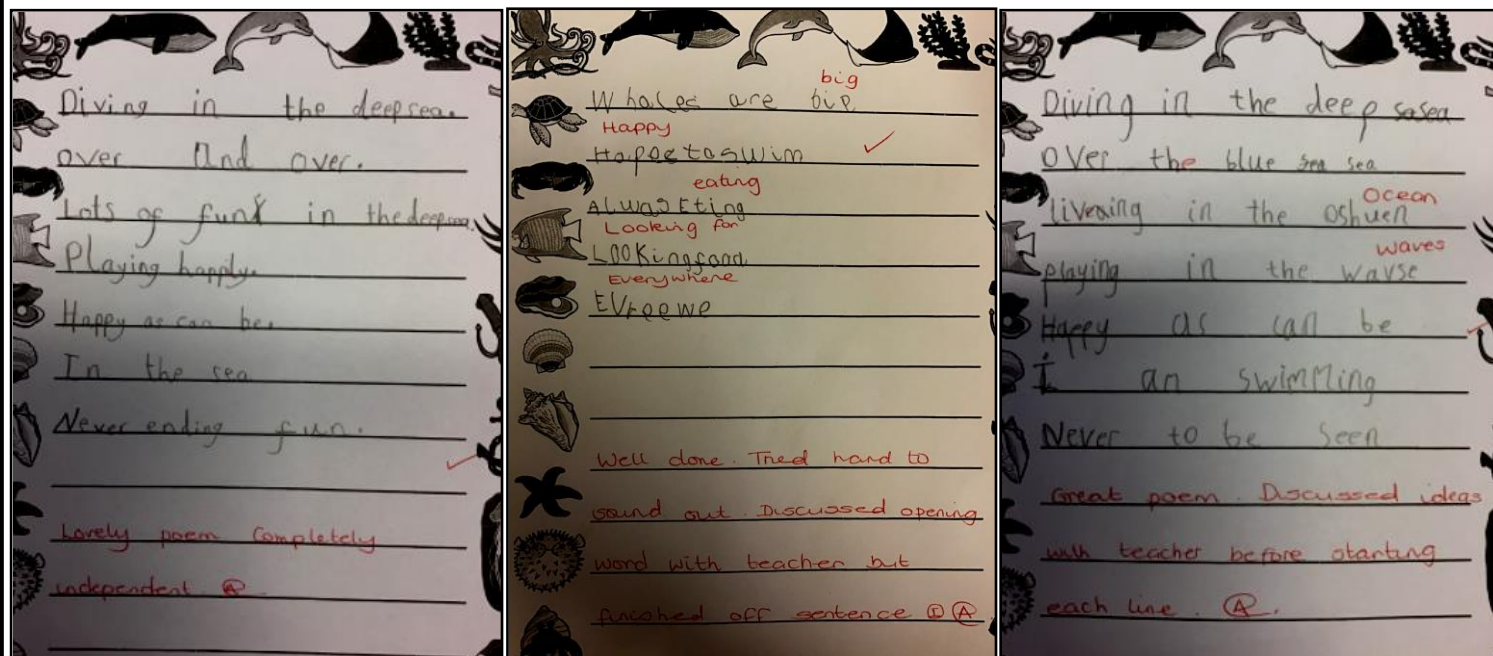 Diving in the deepsea.
over And over.
Lots of fun in the deepsea.
Playing happly.
Happy as can be.
In the sea
Never ending fun.
Lovely poem Completely
independent. A
big
Whales are bip
Happy
Hapoetoswim
eating
AlwasEting
Looking for
LOOKingfond
Everywhere
EVreewe
Well done. Tried hard to
sound out. Discussed opening
word with teacher but
finished off sentence I A
Diving in the deep sasea
over the blue sea sea
Ocean
liveaing in the oshuen
waves
playing in the wavse
Happy as can be
I an swimming
Never to be seen
Great poem. Discussed ideas
with teacher before starting
each line. A.